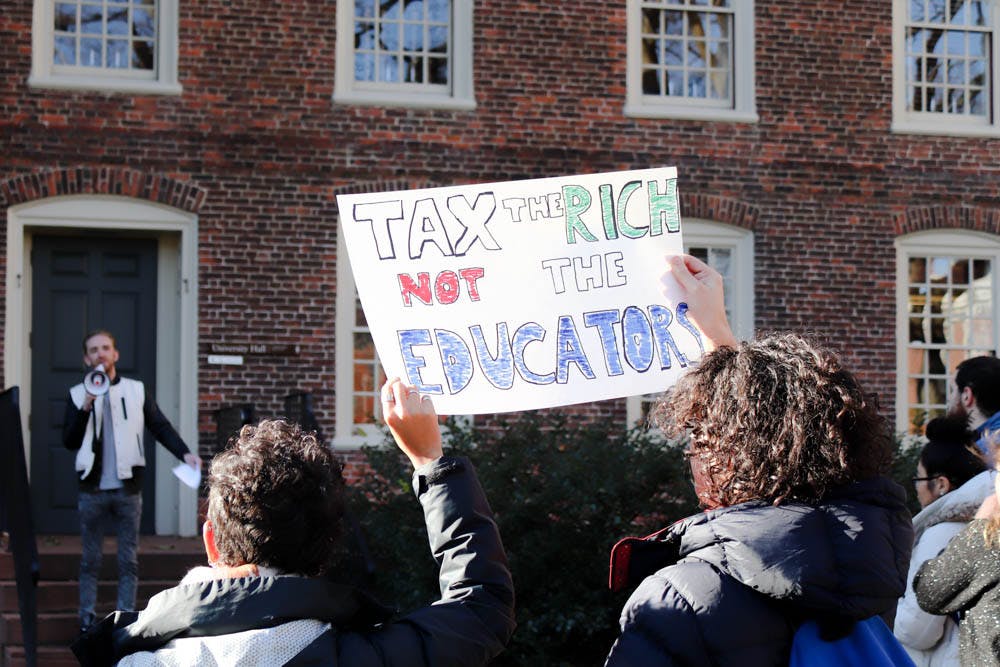 TAX THE RICH
NOT THE
EDUCATORS
University Hall